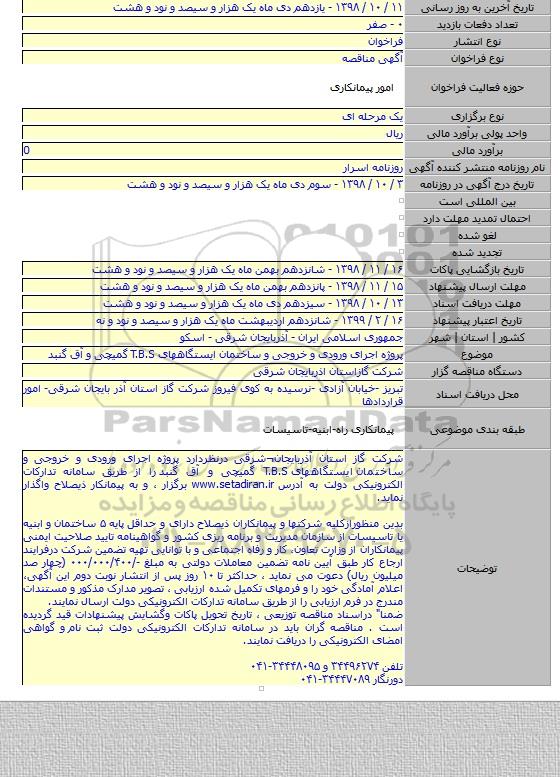 تاریخ آخرین به روز رسانی ۱۱ / ۱۰ / ۱۳۹۸ - یازدهم دی ماه یک هزار و سیصد و نود و هشت
تعداد دفعات بازدید ۰ - صفر
نوع انتشار فراخوان
نوع فراخوان آگهی مناقصه
حوزه فعالیت فراخوان امور پیمانکاری
نوع برگزاری یک مرحله ای
واحد پولی برآورد مالی ریال
برآورد مالی 0
نام روزنامه منتشر کننده آگهی روزنامه اسرار
تاریخ درج آگهی در روزنامه ۳ / ۱۰ / ۱۳۹۸ - سوم دی ماه یک هزار و سیصد و نود و هشت
بین المللی است
احتمال تمدید مهلت دارد
لغو شده
تجدید شده
تاریخ بازگشایی پاکات ۱۶ / ۱۱ / ۱۳۹۸ - شانزدهم بهمن ماه یک هزار و سیصد و نود و هشت
مهلت ارسال پیشنهاد ۱۵ / ۱۱ / ۱۳۹۸ - پانزدهم بهمن ماه یک هزار و سیصد و نود و هشت
مهلت دریافت اسناد ۱۳ / ۱۰ / ۱۳۹۸ - سیزدهم دی ماه یک هزار و سیصد و نود و هشت
تاریخ اعتبار پیشنهاد ۱۶ / ۲ / ۱۳۹۹ - شانزدهم اردیبهشت ماه یک هزار و سیصد و نود و نه
کشور | استان | شهر جمهوری اسلامی ایران - آذربایجان شرقی - اسکو
موضوع پروژه اجرای ورودی و خروجی و ساختمان ایستگاههای T.B.S گمیچی و آق گنبد
دستگاه مناقصه گزار شرکت گازاستان اذربایجان شرقی
محل دریافت اسناد تبریز -خیابان آزادی -نرسیده به کوی فیروز شرکت گاز استان آذر بایجان شرقی- امور
قراردادها
طبقه بندی موضوعی پیمانکاری راه-ابنیه-تاسیسات
ParsNamadData
پایگاه اطلاع رسانی مناقصه و مزایده
توضیحات
شرکت گاز استان آذربایجان¬شرقی درنظردارد پروژه اجرای ورودی و خروجی و
ساختمان ایستگاههای T.B.S گمیچی و آق گنبد را از طریق سامانه تدارکات
الکترونیکی دولت به آدرس www.setadiran.ir برگزار ، و به پیمانکار ذیصلاح واگذار
نماید.
بدین منظورازکلیه شرکتها و پیمانکاران ذیصلاح دارای و حداقل پایه ۵ ساختمان و ابنیه
یا تاسیسات از سازمان مدیریت و برنامه ریزی کشور و گواهینامه تایید صلاحیت ایمنی
پیمانکاران از وزارت تعاون کار و رفاه اجتماعی و با توانایی تهیه تضمین شرکت درفرایند
ارجاع کار طبق آیین نامه تضمین معاملات دولتی به مبلغ -/۰۰۰/۰۰۰/۴۰۰ (چهار صد
میلیون ریال) دعوت می نماید ، حداکثر تا ۱۰ روز پس از انتشار نوبت دوم این آگهی،
اعلام آمادگی خود را و فرمهای تکمیل شده ارزیابی ، تصویر مدارک مذکور و مستندات
مندرج در فرم ارزیابی را از طریق سامانه تدارکات الکترونیکی دولت ارسال نمایند.
ضمنا" دراسناد مناقصه توزیعی ، تاریخ تحویل پاکات وگشایش پیشنهادات قید گردیده
است . مناقصه گران باید در سامانه تدارکات الکترونیکی دولت ثبت نام و گواهی
امضای الکترونیکی را دریافت نمایند.
تلفن ۳۴۴۹۶۲۷۴ و ۳۴۴۴۸۰۹۵-۰۴۱
دورنگار ۳۴۴۴۷۰۸۹-۰۴۱